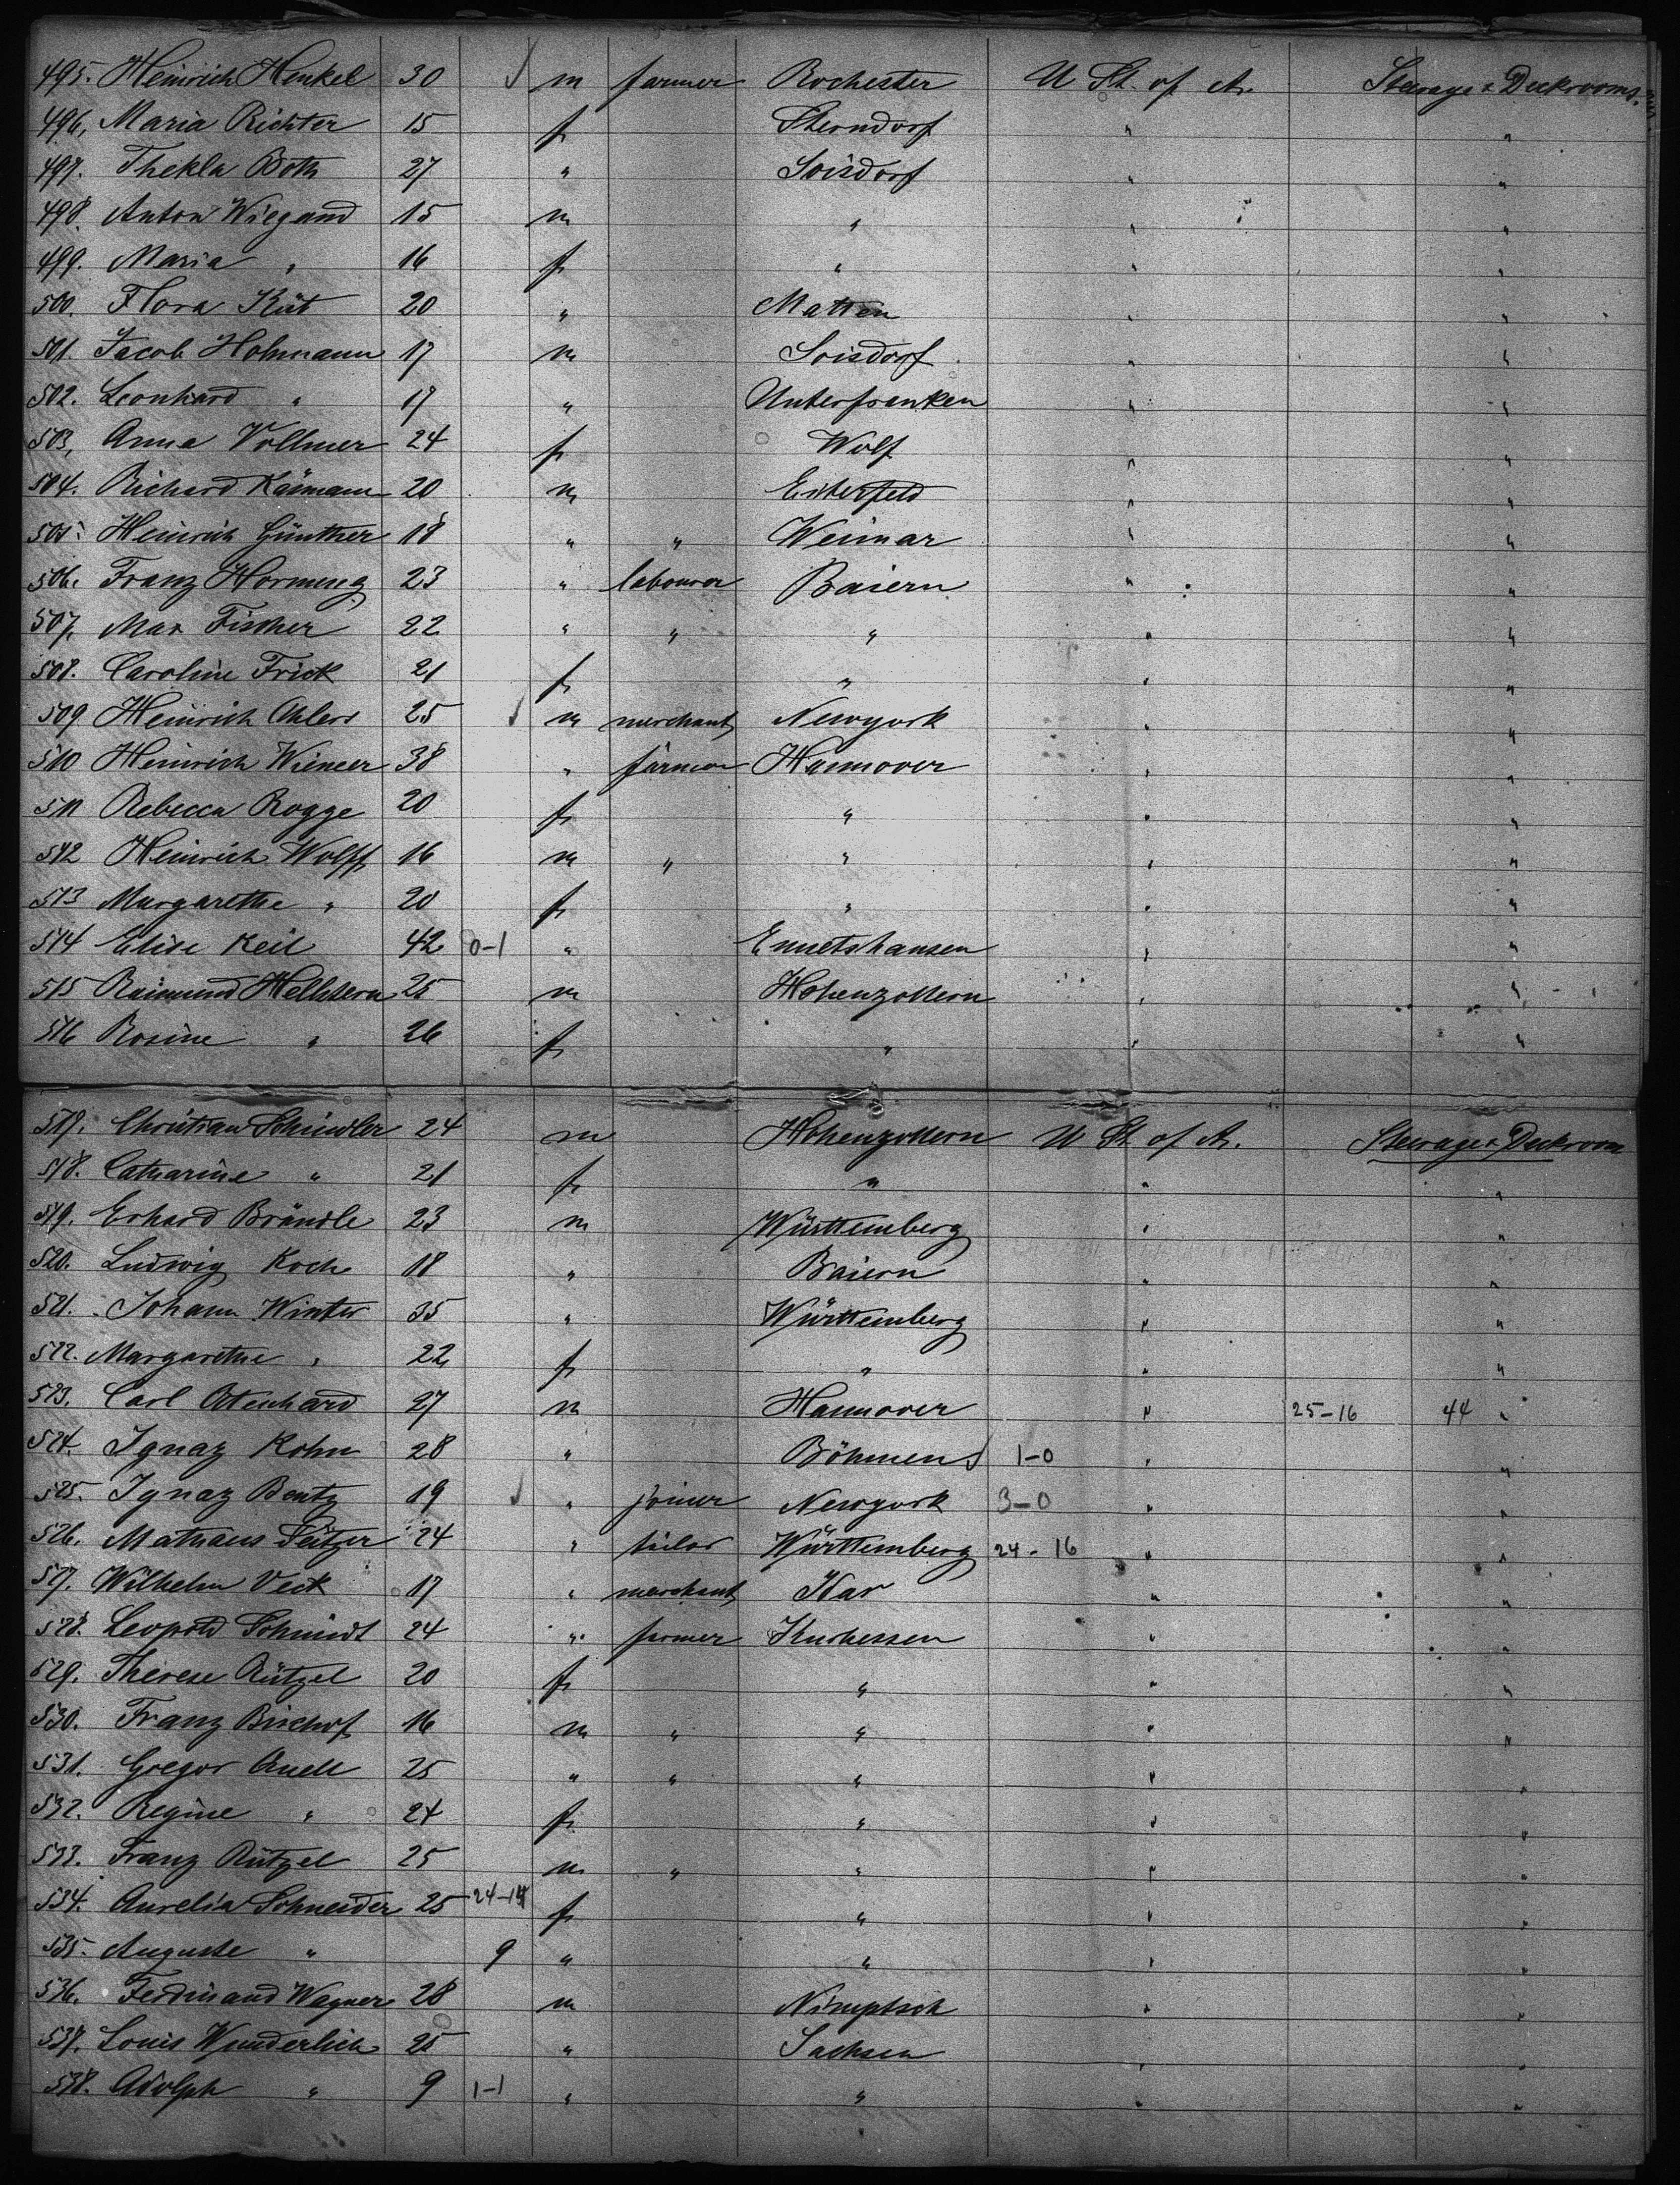 495. Heinrich Henkel 30 m farmer Rochester U St. of A. Steerage & Deckrooms.
496, Maria Richter 15 f Sterndorf " "
497. Thekla Both 27 " Soisdorf " "
498. Anton Wiegand 15 m " " "
499. Maria " 16 f " " "
500. Flora Küt 20 " Matten " "
501. Jacob Hohmann 17 m Soisdorf " "
502. Leonhard " 17 " Unterfranken " "
503, Anna Vollmer 24 f Wolf " "
504. Richard 20 m Eiterfeld " "
505. Heinrich Günther 18 " " Weimar " "
506. Franz Hornung 23 " labourer Baiern " "
507, Max Fischer 22 " " " " "
508. Caroline Frick 21 f " " "
509 Heinrich Ahlers 25 m merchant Newyork " "
510 Heinrich Wiencer 38 " farmer Hannover " "
511 Rebecca Rogge 20 f " " "
512 Heinrich Wolff 16 m " " " "
513 Margarethe " 20 f " " "
514 Elise Keil 42 0-1 " Emmetshausen " "
515 Raimund Hellstern 25 m Hohenzollern " "
516 Rosine " 26 f " " "
517. Christian Schindler 24 m Hohenzollern U St. of A. Steerage & Deckroom
518. Catharine " 21 f " " "
519. Erhard Brändle 23 m Württemberg " "
520. Ludwig Koch 18 " Baiern " "
521. Johann Winter 35 " Württemberg " "
522. Margarethe " 22 f " " "
523. Carl Otenhard 27 m Hannover " 25-16 44 "
524. Ignaz Kohn 28 " Böhmen 1-0 " "
525. Ignaz Bentz 19 " joiner Newyork 3-0 " "
526. Mathäus 24 " tailor Württemberg 24-16 " "
527. Wilhelm Veit 17 " merchant Idar " "
528. Leopold Schmidt 24 " farmer Kurhessen " "
529. Therese Rützel 20 f " " "
530. Franz Bischof 16 m " " " "
531. Gregor Auell 25 " " " " "
532. Regine " 24 f " " "
533. Franz Rützel 25 m " " " "
534. Aurelia Schneider 25 24-14 f " " "
535. Auguste " 9 " " " "
536. Ferdinand Wagner 28 m Nimptsch " "
537. Louis Wunderlich 25 " Sachsen " "
538. Adolph " 9 1-1 " " " "